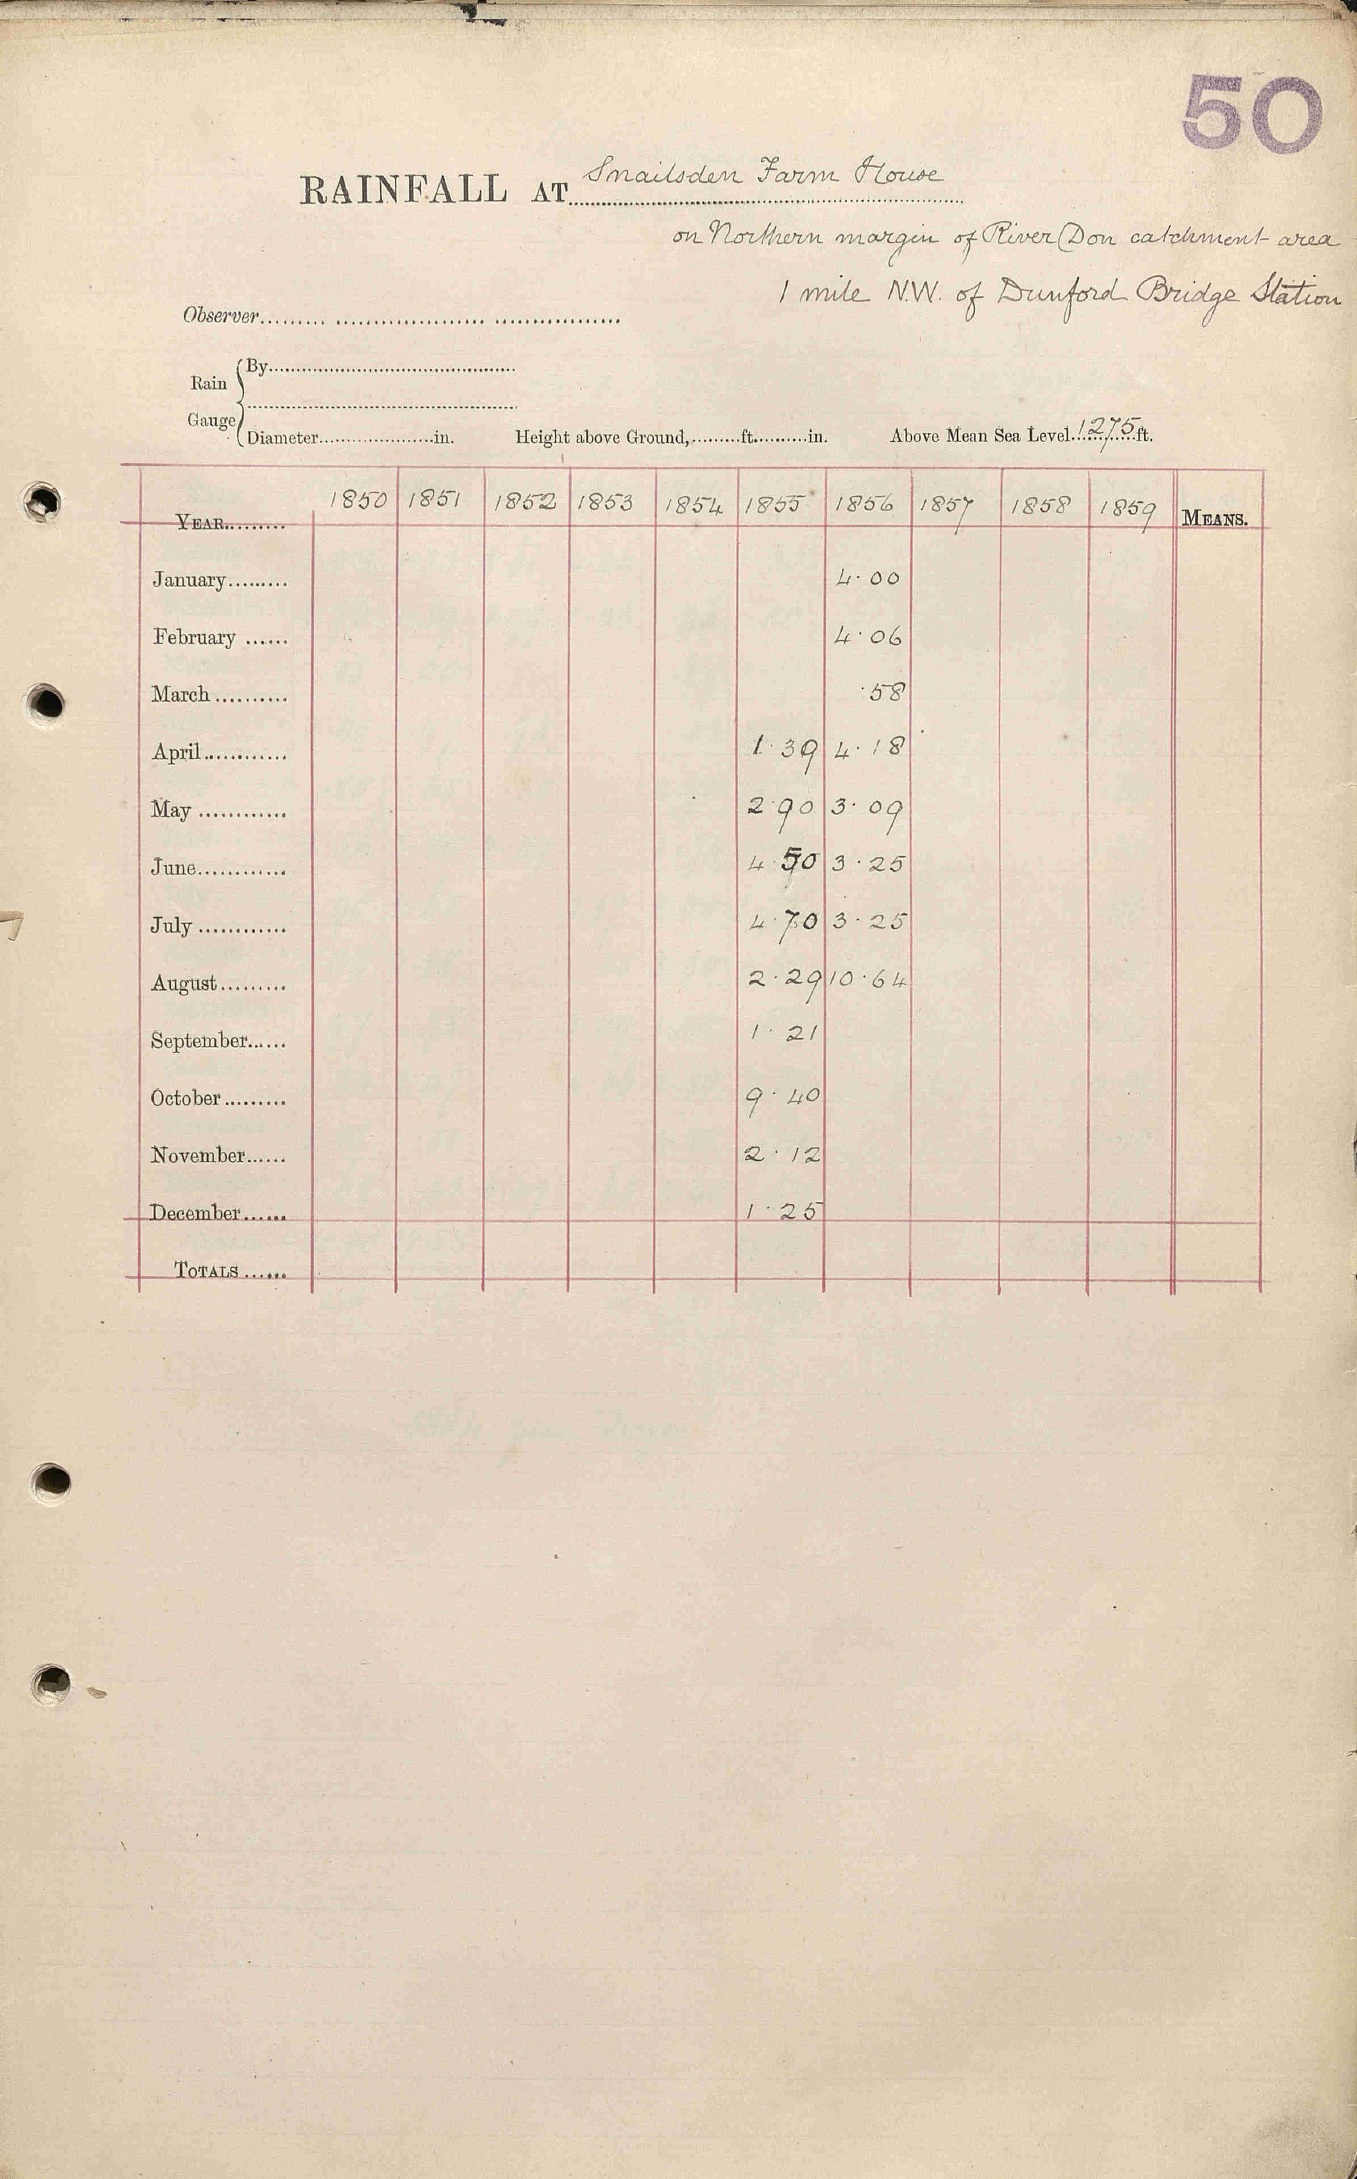 50
RAINFALL AT Snailsden Farm House
on Northern margin of River Don catchment area
1 mile N.W. of Dunford Bridge Station
Observer
Rain Gauge
By
Diameter in. Height above Ground, ft. in. Above Mean Sea Level 1275 ft.
YEAR 1850 1851 1852 1853 1854 1855 1856 1857 1858 1859 MEANS.
January 4.00
February 4.06
March .58
April 1.39 4.18
May 2.90 3.09
June 4.50 3.25
July 4.70 3.25
August 2.29 10.64
September 1.21
October 9.40
November 2.12
December 1.25
TOTALS